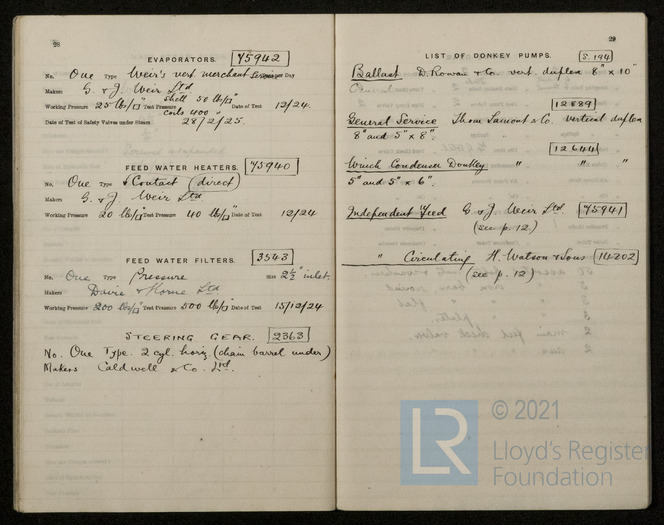 28
EVAPORATORS. 75942
No. One Type Weir's vert. merchant per Day
Makers G. & J. Weir Ltd
shell 50 lb/□"
Working Pressure 25 lb/□" Test Pressure coils 400 " Date of Test 12/24.
Date of Test of Safety Valves under Steam 28/2/25.
FEED WATER HEATERS. 75940
No. One Type Contact (direct)
Makers G. & J. Weir Ltd
Working Pressure 20 lb/□" Test Pressure 40 lb/□" Date of Test 12/24
FEED WATER FILTERS. 3543
No. One Type Pressure Size 2½" inlet.
Makers Davie & Horne Ltd
Working Pressure 200 lb/□" Test Pressure 500 lb/□" Date of Test 15/12/24
STEERING GEAR. 2363
No. One Type. 2 cyl. horiz (chain barrel under)
Makers Caldwell & Co. Ltd.
29
LIST OF DONKEY PUMPS. S.194
Ballast D. Rowan & Co. vert. duplex 8" x 10"
12889
General Service Thom Lamont & Co. vertical duplex
8" and 5" x 8".
12644
Winch Condenser Donkey " " "
5" and 5" x 6".
Independent Feed G. & J. Weir Ltd. 75941
(see p. 12.)
" Circulating H. Watson & Sons 14202
(see p. 12)
© 2021
LR
Lloyd's Register
Foundation